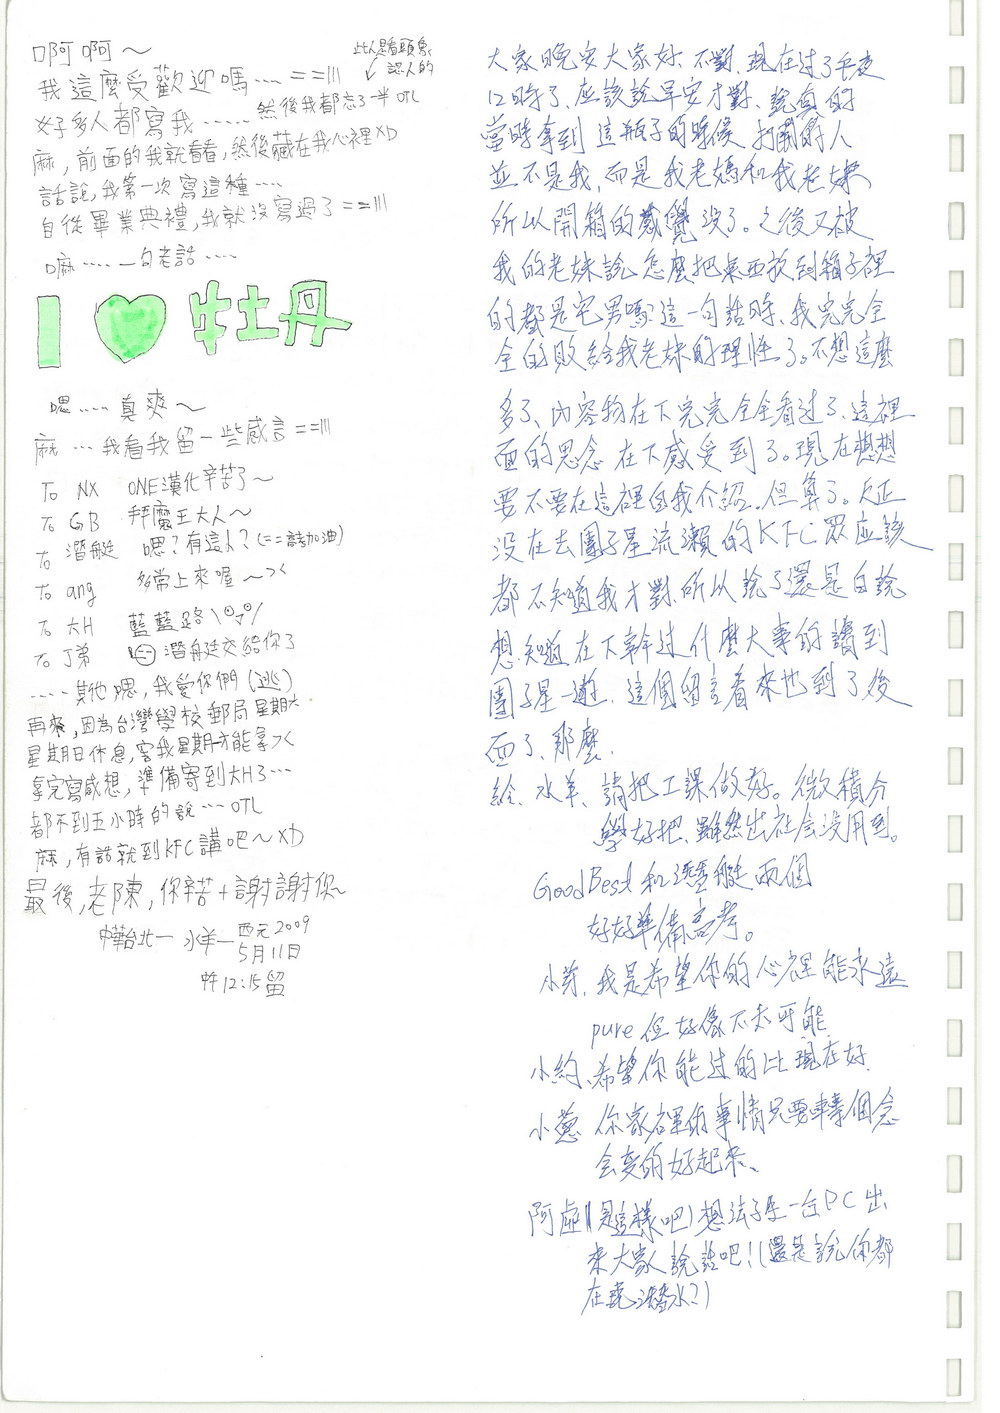 啊啊～
此人是看頭像
認人的
我這麼受歡迎嗎.... ==|||
好多人都寫我 ..... 然後我都忘了一半 OTL
麻，前面的我就看看，然後藏在我心裡XD
話說，我第一次寫這種....
自從畢業典禮，我就沒寫過了==|||
嘛.... 一句老話....
I ♥ 牡丹
嗯.... 真爽～
麻 ...我看我留一些感言==|||
To NX ONE漢化辛苦了～
To GB 拜魔王大人～
To 潛艇 嗯？有這人？(==請加油)
To ang 多常上來喔～>く
To 大H 藍藍路
To J弟 潛艇交給你了
.... 其他嗯，我愛你們(逃)
再來，因為台灣學校郵局星期六
星期日休息，害我星期一才能拿>く
拿完寫感想，準備寄到大H了...
都不到五小時的說... OTL
麻，有話就到KFC講吧～XD
最後，老陳，你辛苦+謝謝你～
中華台北－水羊－西元2009
5月11日
中午12:15留
大家晚安大家好、不對、現在过了半夜
12時了、应該說早安才對、說真的
當時拿到這瓶子的時候 打開的人
並不是我、而是我老媽和我老妹
所以開箱的感覺没了。之後又被
我的老妹說 怎麼把東西放到箱子裡
的都是宅男嗎？這一句話時、我完完全
全的敗給我老妹的理性了。不想這麼
多了、内容物在下完完全全看过了、這裡
面的思念 在下感受到了。現在想想
要不要在這裡自我介紹、但算了。反正
没在去團子星流瀨的KFC眾应該
都不知道我才對、所以說了還是白說
想知道在下幹过什麼大事的請到
團子星一遊、這個留言看來也到了後
面了、那麼、
給、水羊、請把工課做好。微積分
學好把、雖然出社会没用到。
GoodBest 和潛艇兩個
好好準備高考。
小芽、我是希望你的心裡能永遠
pure 但好像不太可能
小約、希望你能过的比現在好
小蔥 你家裡的事情只要轉個念
会变的好起來、
阿虛(是這樣吧)想法子生一台PC出
來大家說話吧!(還是說你都
在潛水?)